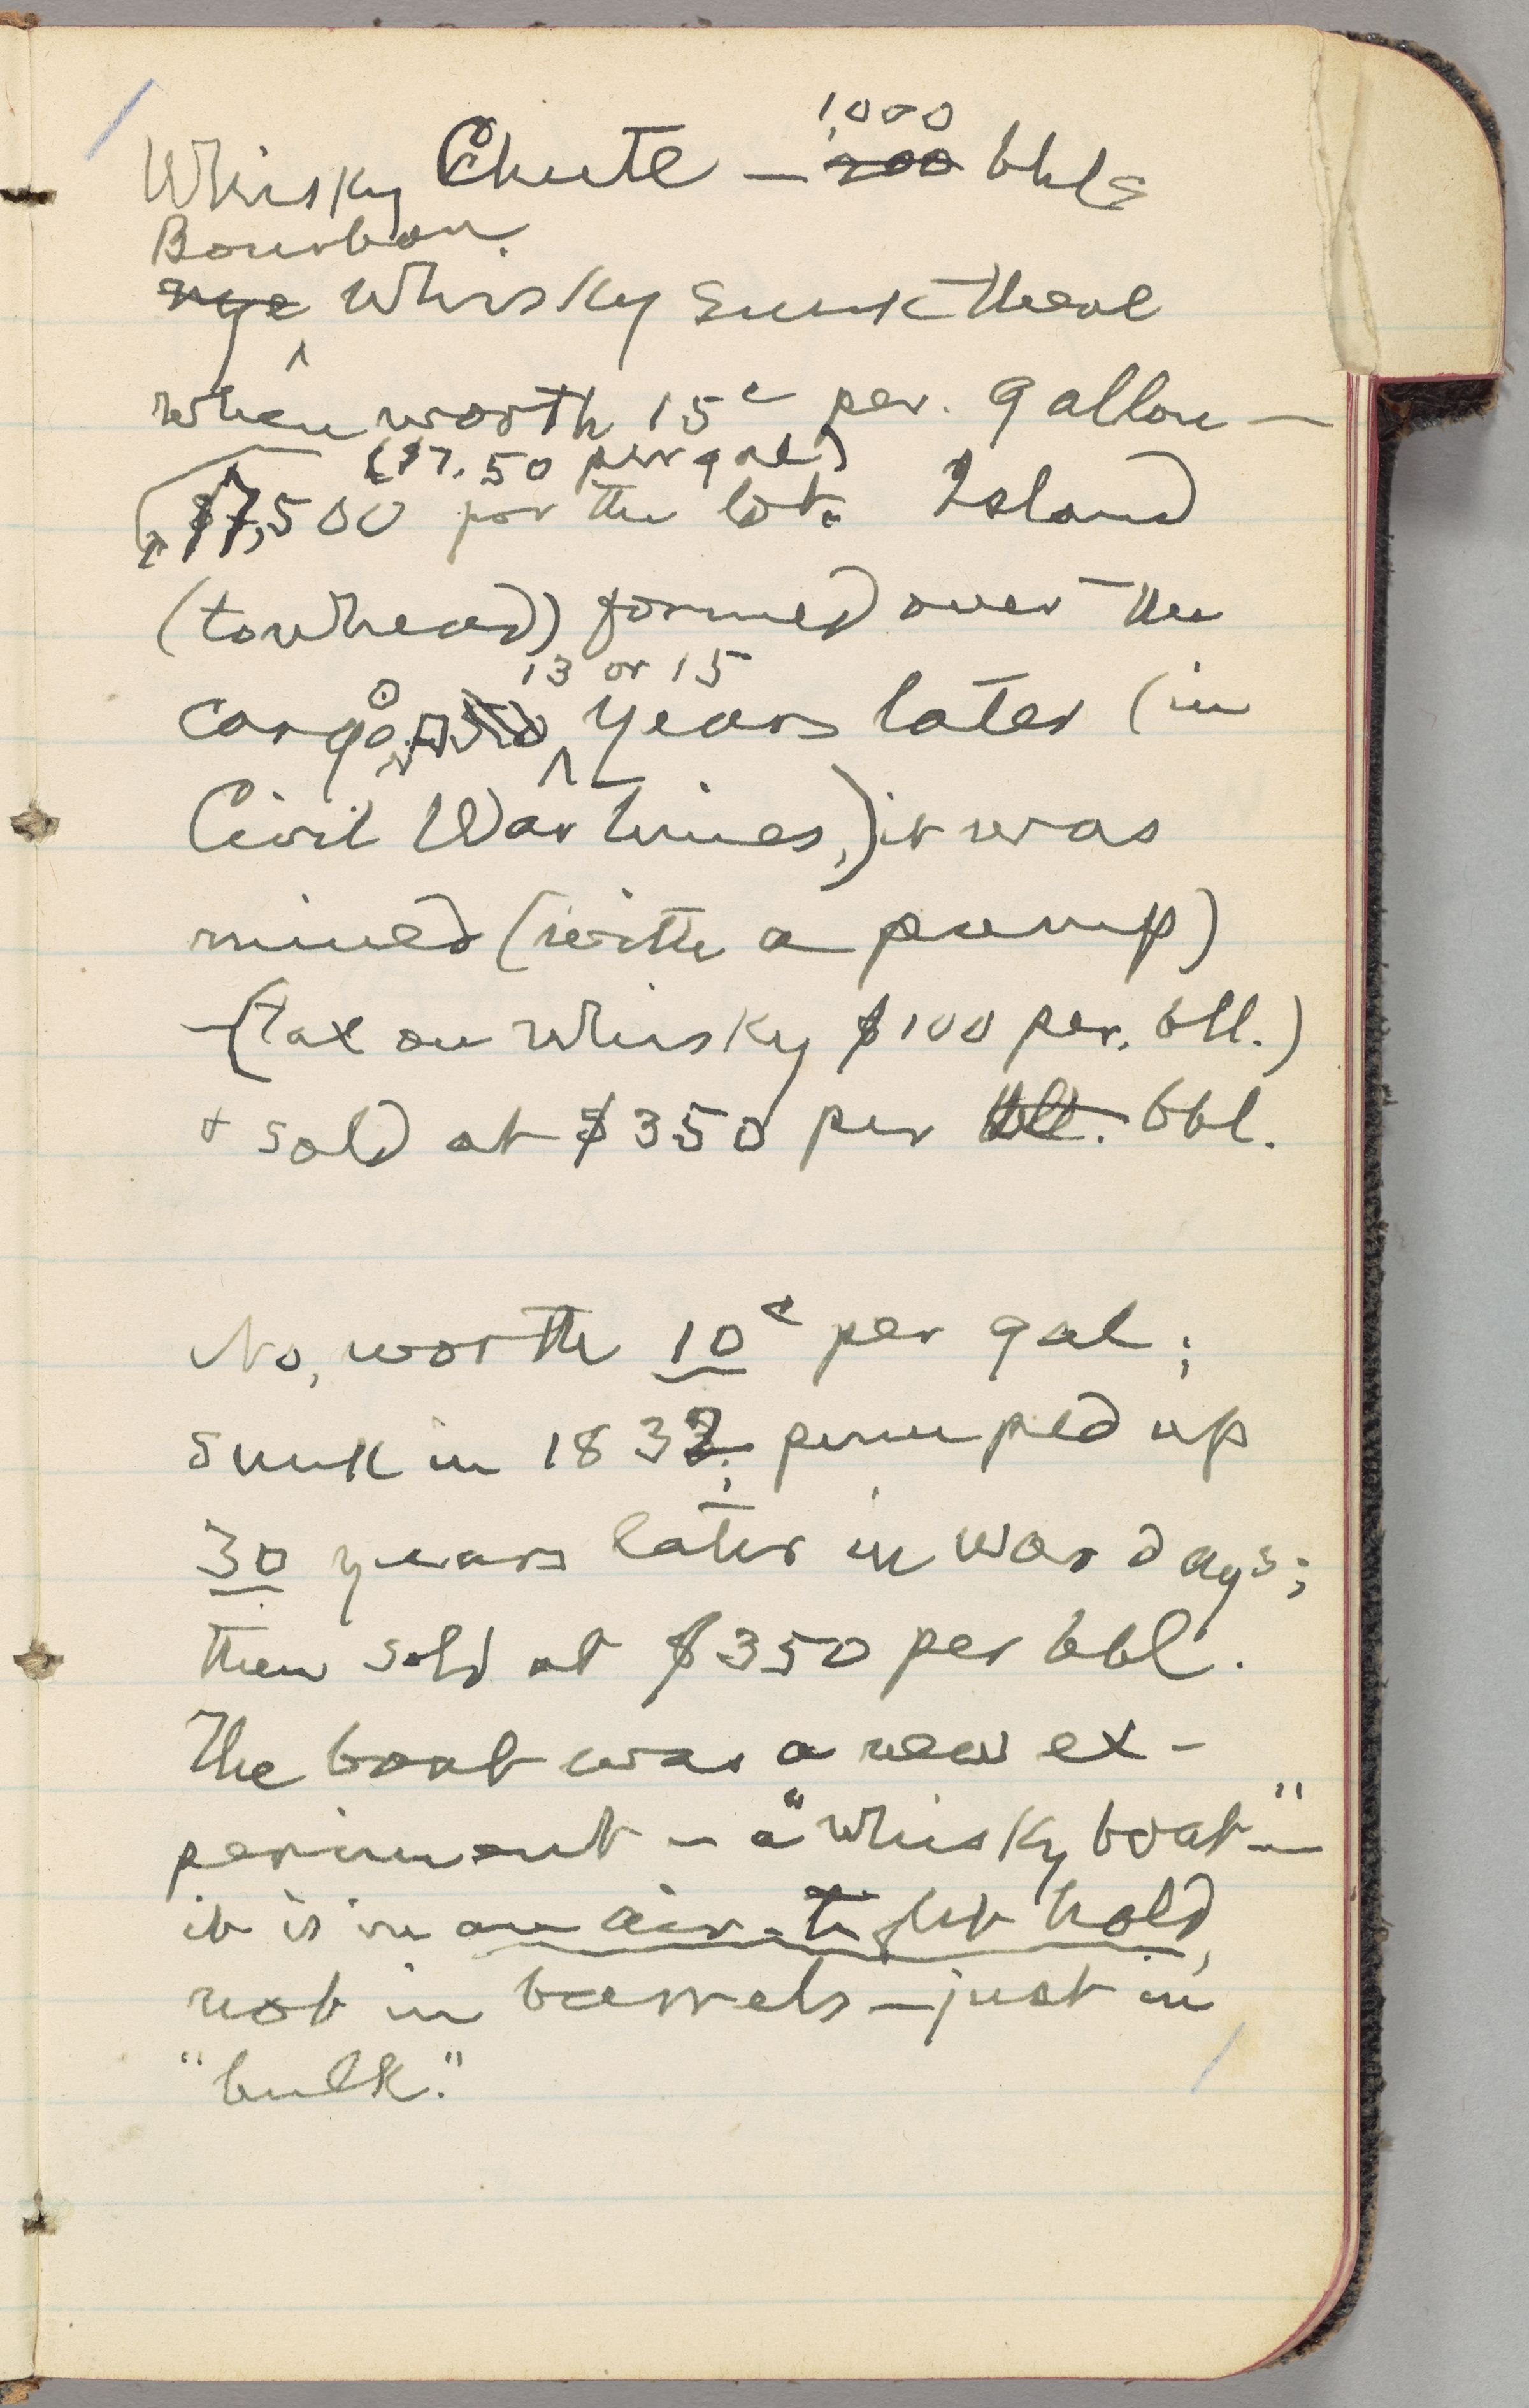 1,000
Whisky Chute — 200 bbls
Bourbon
rye whisky sunk there
when worth 15c per. gallon —
($7.50 per gal)
$7,500 for the lot. Island
(towhead) formed over the
13 or 15
cargo, years later (in
Civil War times,) it was
mined (with a pump)
—(tax on whisky $100 per. bbl.)
+ sold at $350 per bbl. bbl.
No, worth 10c per gal;
sunk in 1832; pumped up
30 years later in war days;
then sold at $350 per bbl.
The boat was a new ex-
periment — a "whisky boat" —
it is in an air-tight hold,
not in barrels — just in
"bulk."